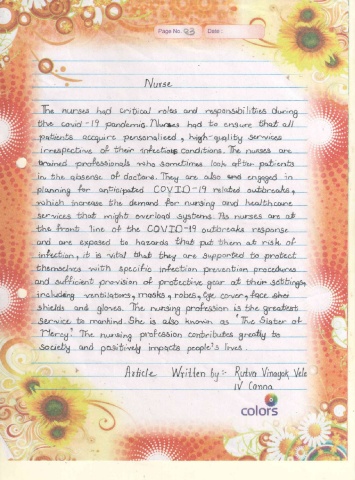 Page No. 23 Date :
Nurse
The nurses had critical roles and responsibilities during
the covid-19 pandemic. Nurses had to ensure that all
patients acquire personalised, high-quality services
irrespective of their infectious conditions. The nurses are
trained professionals who sometimes look after patients
in the absense of doctors. They are also engaged in
planning for anticipated COVID-19 related outbreaks,
which increase the demand for nursing and healthcare
services that might overload systems. As nurses are at
the front line of the COVID-19 outbreaks response
and are exposed to hazards that put them at risk of
infection, it is vital that they are supported to protect
themselves with specific infection prevention procedures
and sufficient provision of protective gear at their settings,
including ventilators, masks, robes, eye cover, face
shields and gloves. The nursing profession is the greatest
service to mankind. She is also known as "The Sister of
Mercy". The nursing profession contributes greatly to
society and positively impacts people's lives.
Article Written by :- Rudra Vinayak Vele
IV Canna
colors